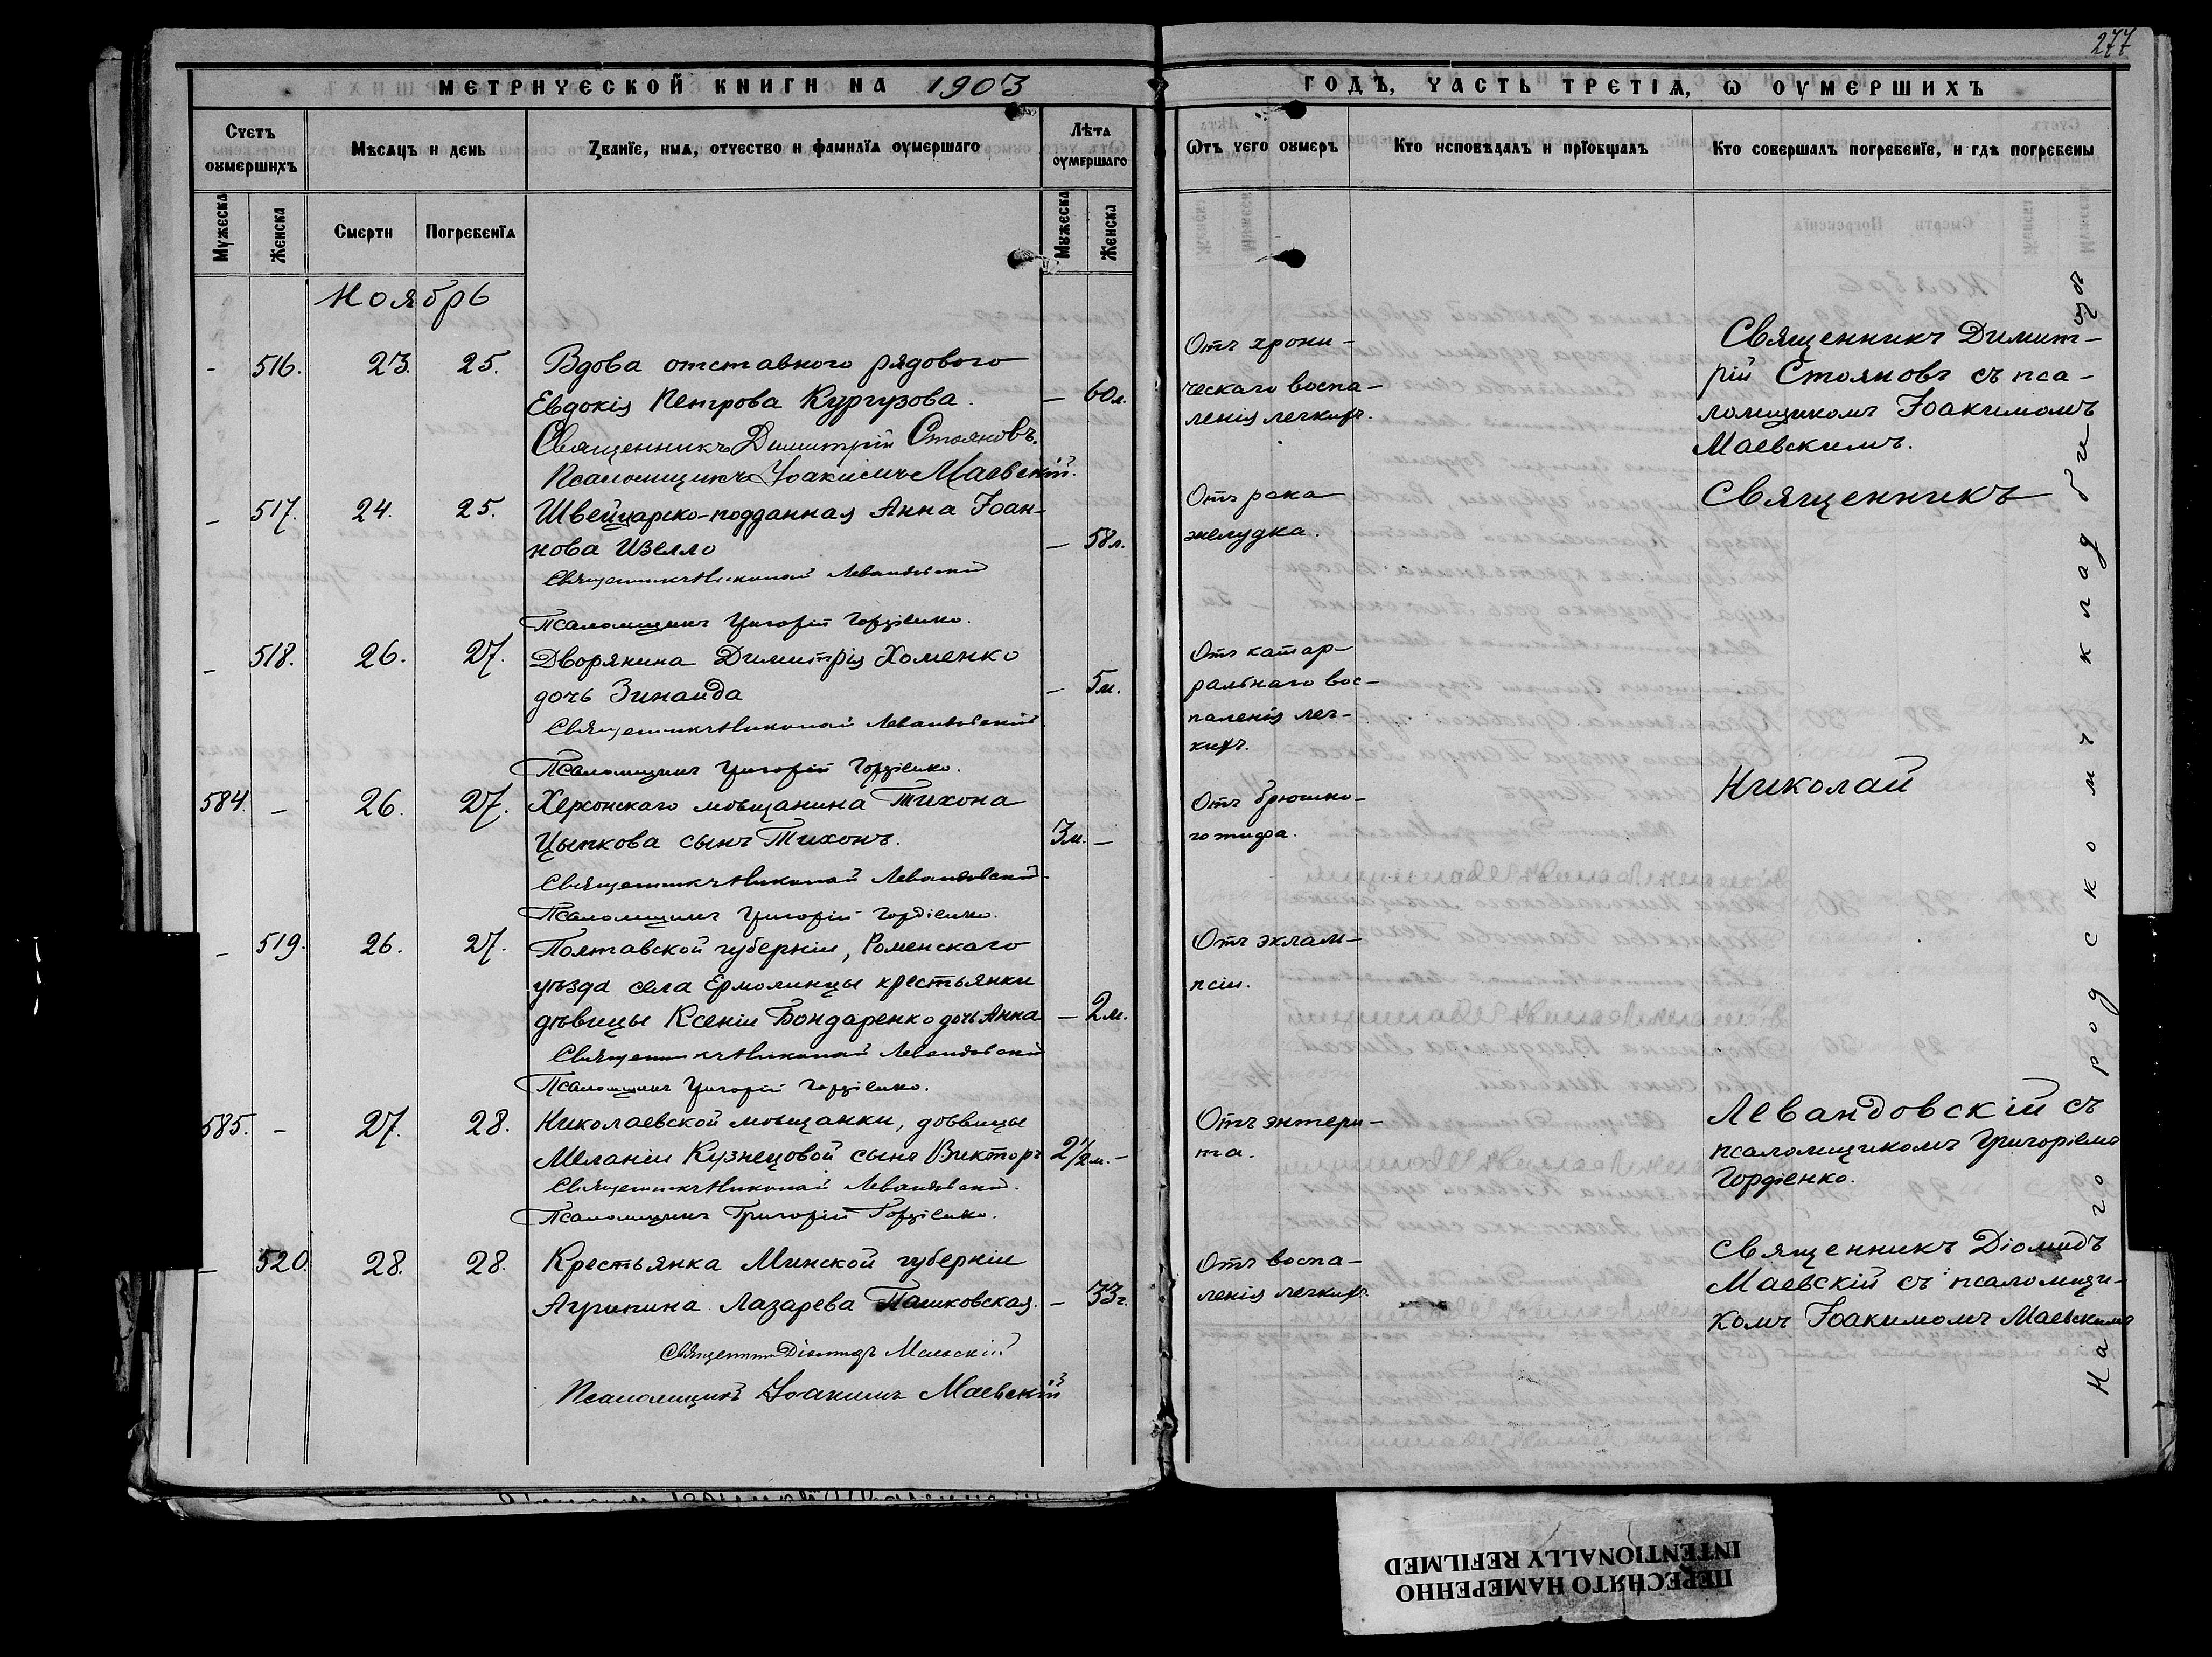 277
МЕТРИЧЕСКОЙ КНИГИ НА 1903
ГОДЪ, ЧАСТЬ ТРЕТІѦ, Ѡ ОУМЕРШИХЪ
Счетъ оумершихъ
Мѣсѧцъ и день
Званїе, имѧ, отчество и фамилїѧ оумершаго
Лѣта оумершаго
Ѿтъ чего оумеръ
Кто исповѣдалъ и прїобщалъ
Кто совершалъ погребенїе, и гдѣ погребены
Мужеска
Женска
Смерти
Погребенїѧ
Мужеска
Женска
Ноябрь
- 516. 23. 25. Вдова отставного рядового
Евдокія Петрова Кургузова. - 60 л.
Священникъ Димитрій Стояновъ.
Псаломщикъ Іоакимъ Маевскій.
Отъ хрони-
ческаго воспа-
ленія легкихъ.
Священникъ Димит-
рій Стояновъ съ пса-
ломщикомъ Іоакимомъ
Маевскимъ.
- 517. 24. 25. Швейцарско-подданная Анна Іоан-
нова Изелло - 58 л.
Священникъ Николай Левандовскій
Псаломщикъ Григорій Гордіенко.
Отъ рака
желудка.
Священникъ
- 518. 26. 27. Дворянина Димитрія Хоменко
дочь Зинаида - 5 м.
Священникъ Николай Левандовскій
Псаломщикъ Григорій Гордіенко.
Отъ катар-
ральнаго вос-
паленія лег-
кихъ.
584. - 26. 27. Херсонскаго мѣщанина Тихона
Цыпкова сынъ Тихонъ. 3 м. -
Священникъ Николай Левандовскій
Псаломщикъ Григорій Гордіенко.
Отъ брюшно-
го тифа.
Николай
- 519. 26. 27. Полтавской губерніи, Роменскаго
уѣзда села Ермолинцы крестьянки
дѣвицы Ксеніи Бондаренко дочь Анна - 2 м.
Священникъ Николай Левандовскій
Псаломщикъ Григорій Гордіенко.
Отъ эклам-
псіи.
585. - 27. 28. Николаевской мѣщанки, дѣвицы
Меланіи Кузнецовой сынъ Викторъ 2 1/2 м. -
Священникъ Николай Левандовскій.
Псаломщикъ Григорій Гордіенко.
Отъ энтери-
та.
Левандовскій съ
псаломщикомъ Григоріемъ
Гордіенко.
- 520. 28. 28. Крестьянка Минской губерніи
Агрипина Лазарева Пашковская. - 33 г.
Священникъ Діомидъ Маевскій
Псаломщикъ Іоакимъ Маевскій
Отъ воспа-
ленія легкихъ
Священникъ Діомидъ
Маевскій съ псаломщи-
комъ Іоакимомъ Маевскимъ
На городскомъ кладбищѣ
ПЕРЕСНЯТО НАМЕРЕННО
INTENTIONALLY REFILMED